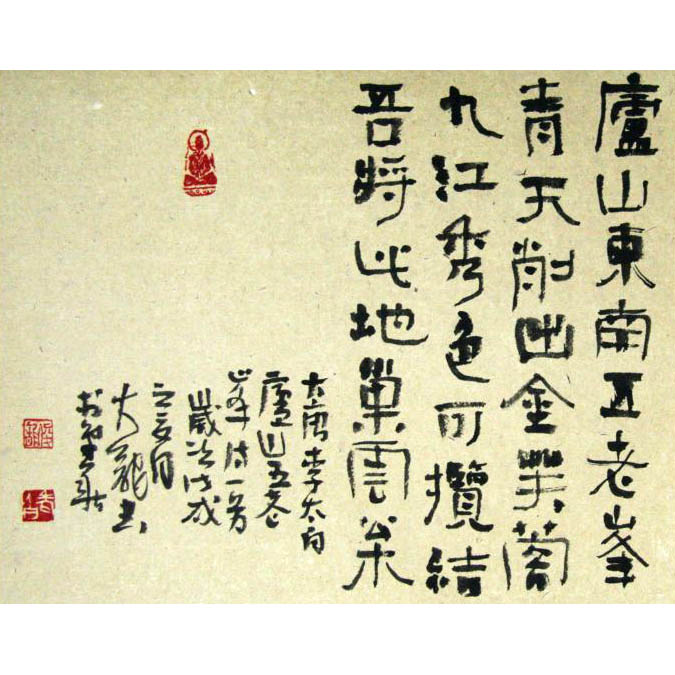 廬山東南五老峯
青天削出金芙蓉
九江秀色可攬結
吾將此地巢雲松
大唐李太白
廬山五老
峯詩一首
歲次戊戌
之夏月
大龍書